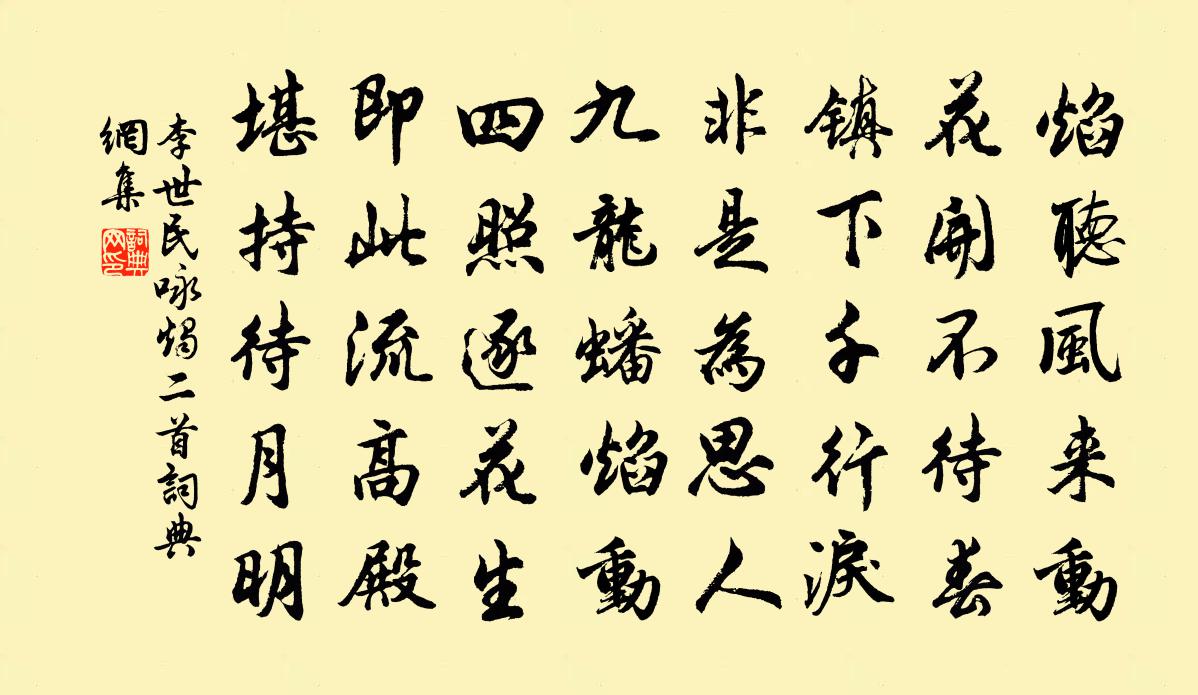 焰聽風来動
花開不待春
鎮下千行淚
非是為思人
九龍蟠焰動
四照逐花生
即此流高殿
堪持待月明
李世民咏燭二首詞典
網集
詞典
网印